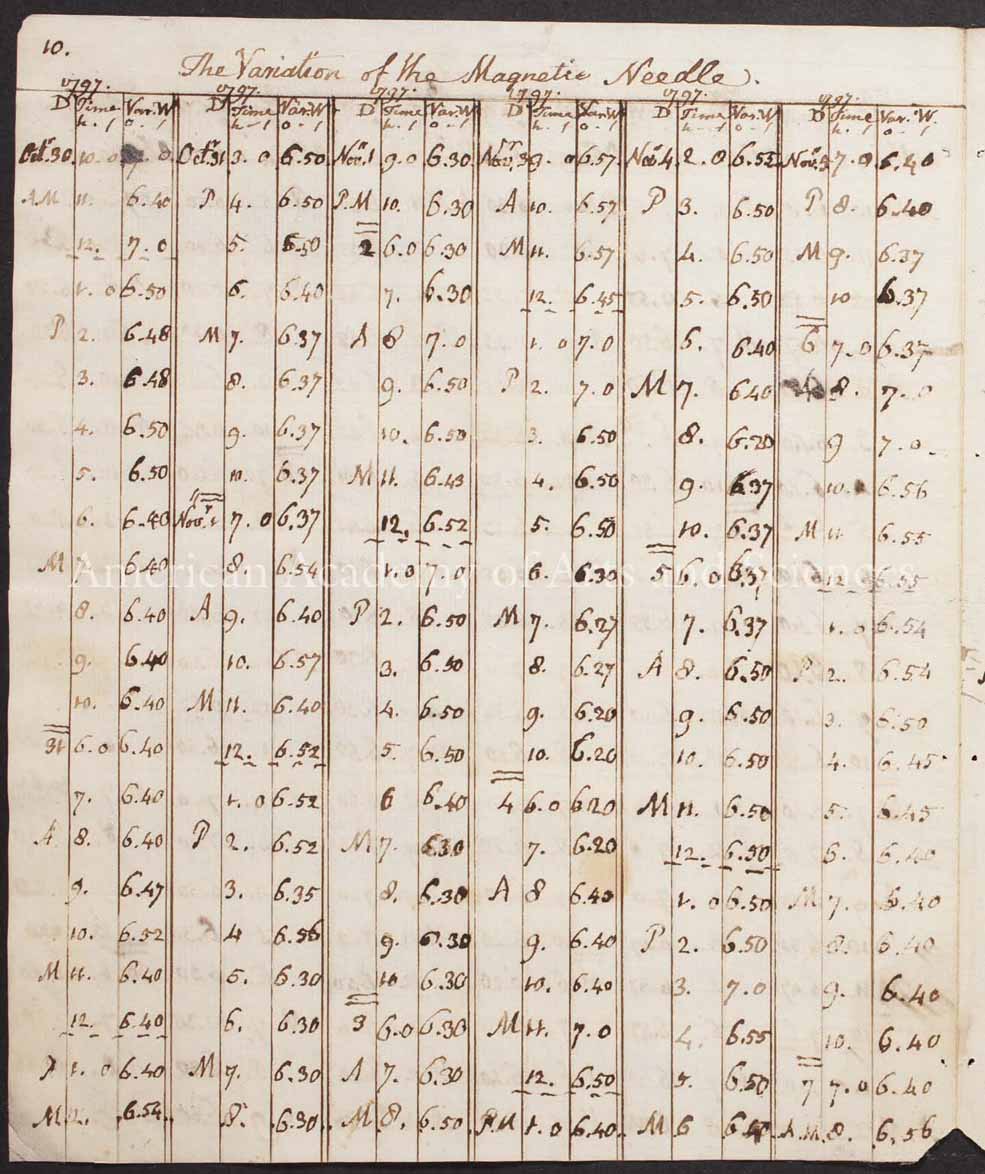 10.
The Variation of the Magnetic Needle.
1797. 1797. 1797. 1797. 1797. 1797.
D Time Var. W D Time Var. W D Time Var. W D Time Var. W D Time Var. W D Time Var. W
h. / o / h. / o / h. / o / h. / o / h. / o / h. / o /
Octr. 30 10. 0 7. 0 Octr. 31 3. 0 6.50 Novr. 1 9. 0 6.30 Novr. 3 9. 0 6.57 Novr. 4 2. 0 6.52 Novr. 5 7. 0 6.40
AM 11. 6.40 P 4. 6.50 P.M 10. 6.30 A 10. 6.57 P 3. 6.50 P 8. 6.40
12. 7. 0 5. 6.50 2 6. 0 6.30 M 11. 6.57 4. 6.50 M 9. 6.37
1. 0 6.50 6. 6.40 7. 6.30 12. 6.45 5. 6.50 10 6.37
P 2. 6.48 M 7. 6.37 A 8 7. 0 1. 0 7. 0 6. 6.40 6 7. 0 6.37
3. 6.48 8. 6.37 9. 6.50 P 2. 7. 0 M 7. 6.40 8. 7. 0
4. 6.50 9. 6.37 10. 6.50 3. 6.50 8. 6.20 9 7. 0
5. 6.50 10. 6.37 M 11. 6.43 4. 6.50 9. 6.37 10. 6.56
6. 6.40 Novr. 1 7. 0 6.37 12. 6.52 5. 6.50 10. 6.37 M 11 6.55
M 7. 6.40 8. 6.54 1. 0 7. 0 6. 6.30 5 6. 0 6.37 12 6.55
American Academy of Arts and Sciences
8. 6.40 A 9. 6.40 P 2. 6.50 M 7. 6.27 7. 6.37 1. 0 6.54
9. 6.40 10. 6.57 3. 6.50 8. 6.27 A 8. 6.50 P 2. 6.54
10. 6.40 M 11. 6.40 4. 6.50 9. 6.20 9. 6.50 3. 6.50
31 6. 0 6.40 12. 6.52 5. 6.50 10. 6.20 10. 6.50 4. 6.45
7. 6.40 1. 0 6.52 6 6.40 4 6. 0 6.20 M 11. 6.50 5. 6.45
A 8. 6.40 P 2. 6.52 M 7. 6.30 7. 6.20 12. 6.50 6. 6.40
9. 6.47 3. 6.35 8. 6.30 A 8 6.40 1. 0 6.50 M 7. 6.40
10. 6.52 4 6.36 9. 6.30 9. 6.40 P 2. 6.50 8. 6.40
M 11. 6.40 5. 6.30 10 6.30 10. 6.40 3. 7. 0 9. 6.40
12. 6.40 6. 6.30 3 6. 0 6.30 M 11. 7. 0 4. 6.55 10. 6.40
P 1. 0 6.40 M 7. 6.30 A 7. 6.30 12. 6.50 5. 6.50 7 7. 0 6.40
M 2. 6.54. 8. 6.30. M 8. 6.50. P.M 1. 0 6.40. M 6 6.40 A.M. 8. 6.56